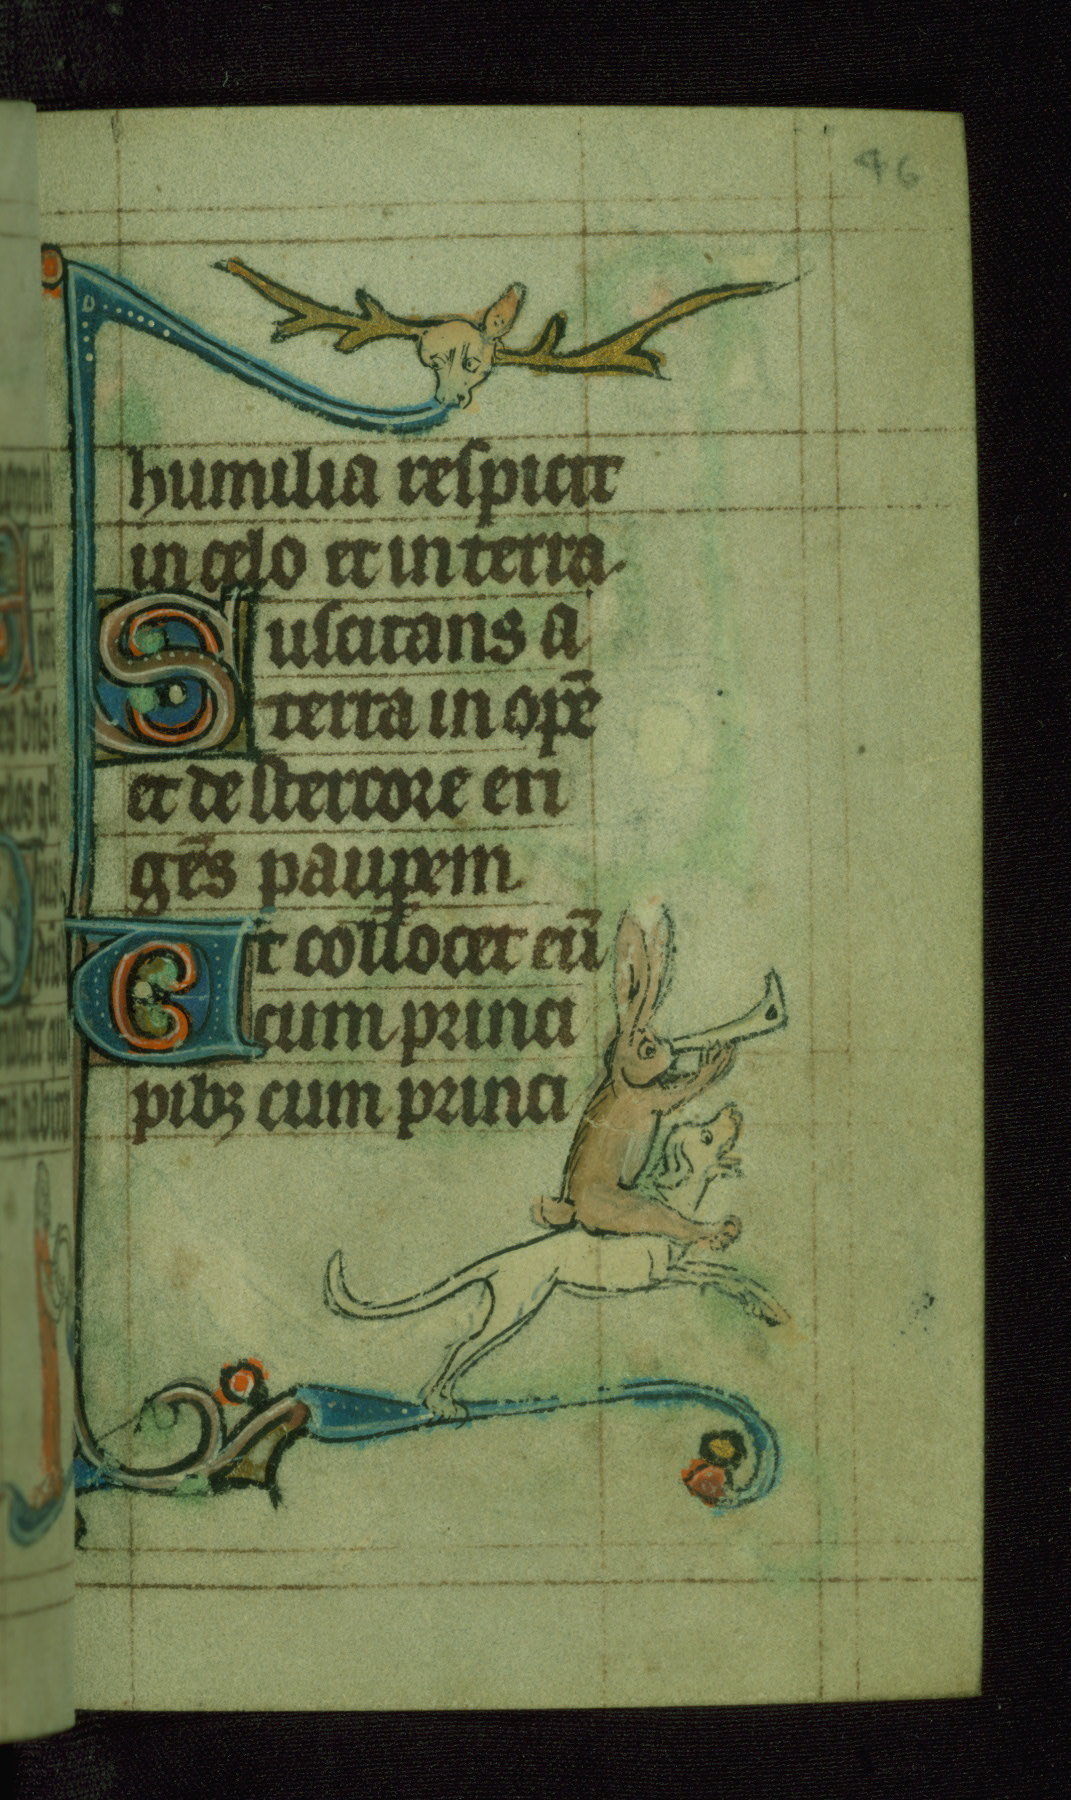 46
humilia respicit
in celo et in terra.
Suscitans a
terra inopē
et de stercore eri
gēs pauperem.
Et collocet eū
cum princi
pibꝫ cum princi